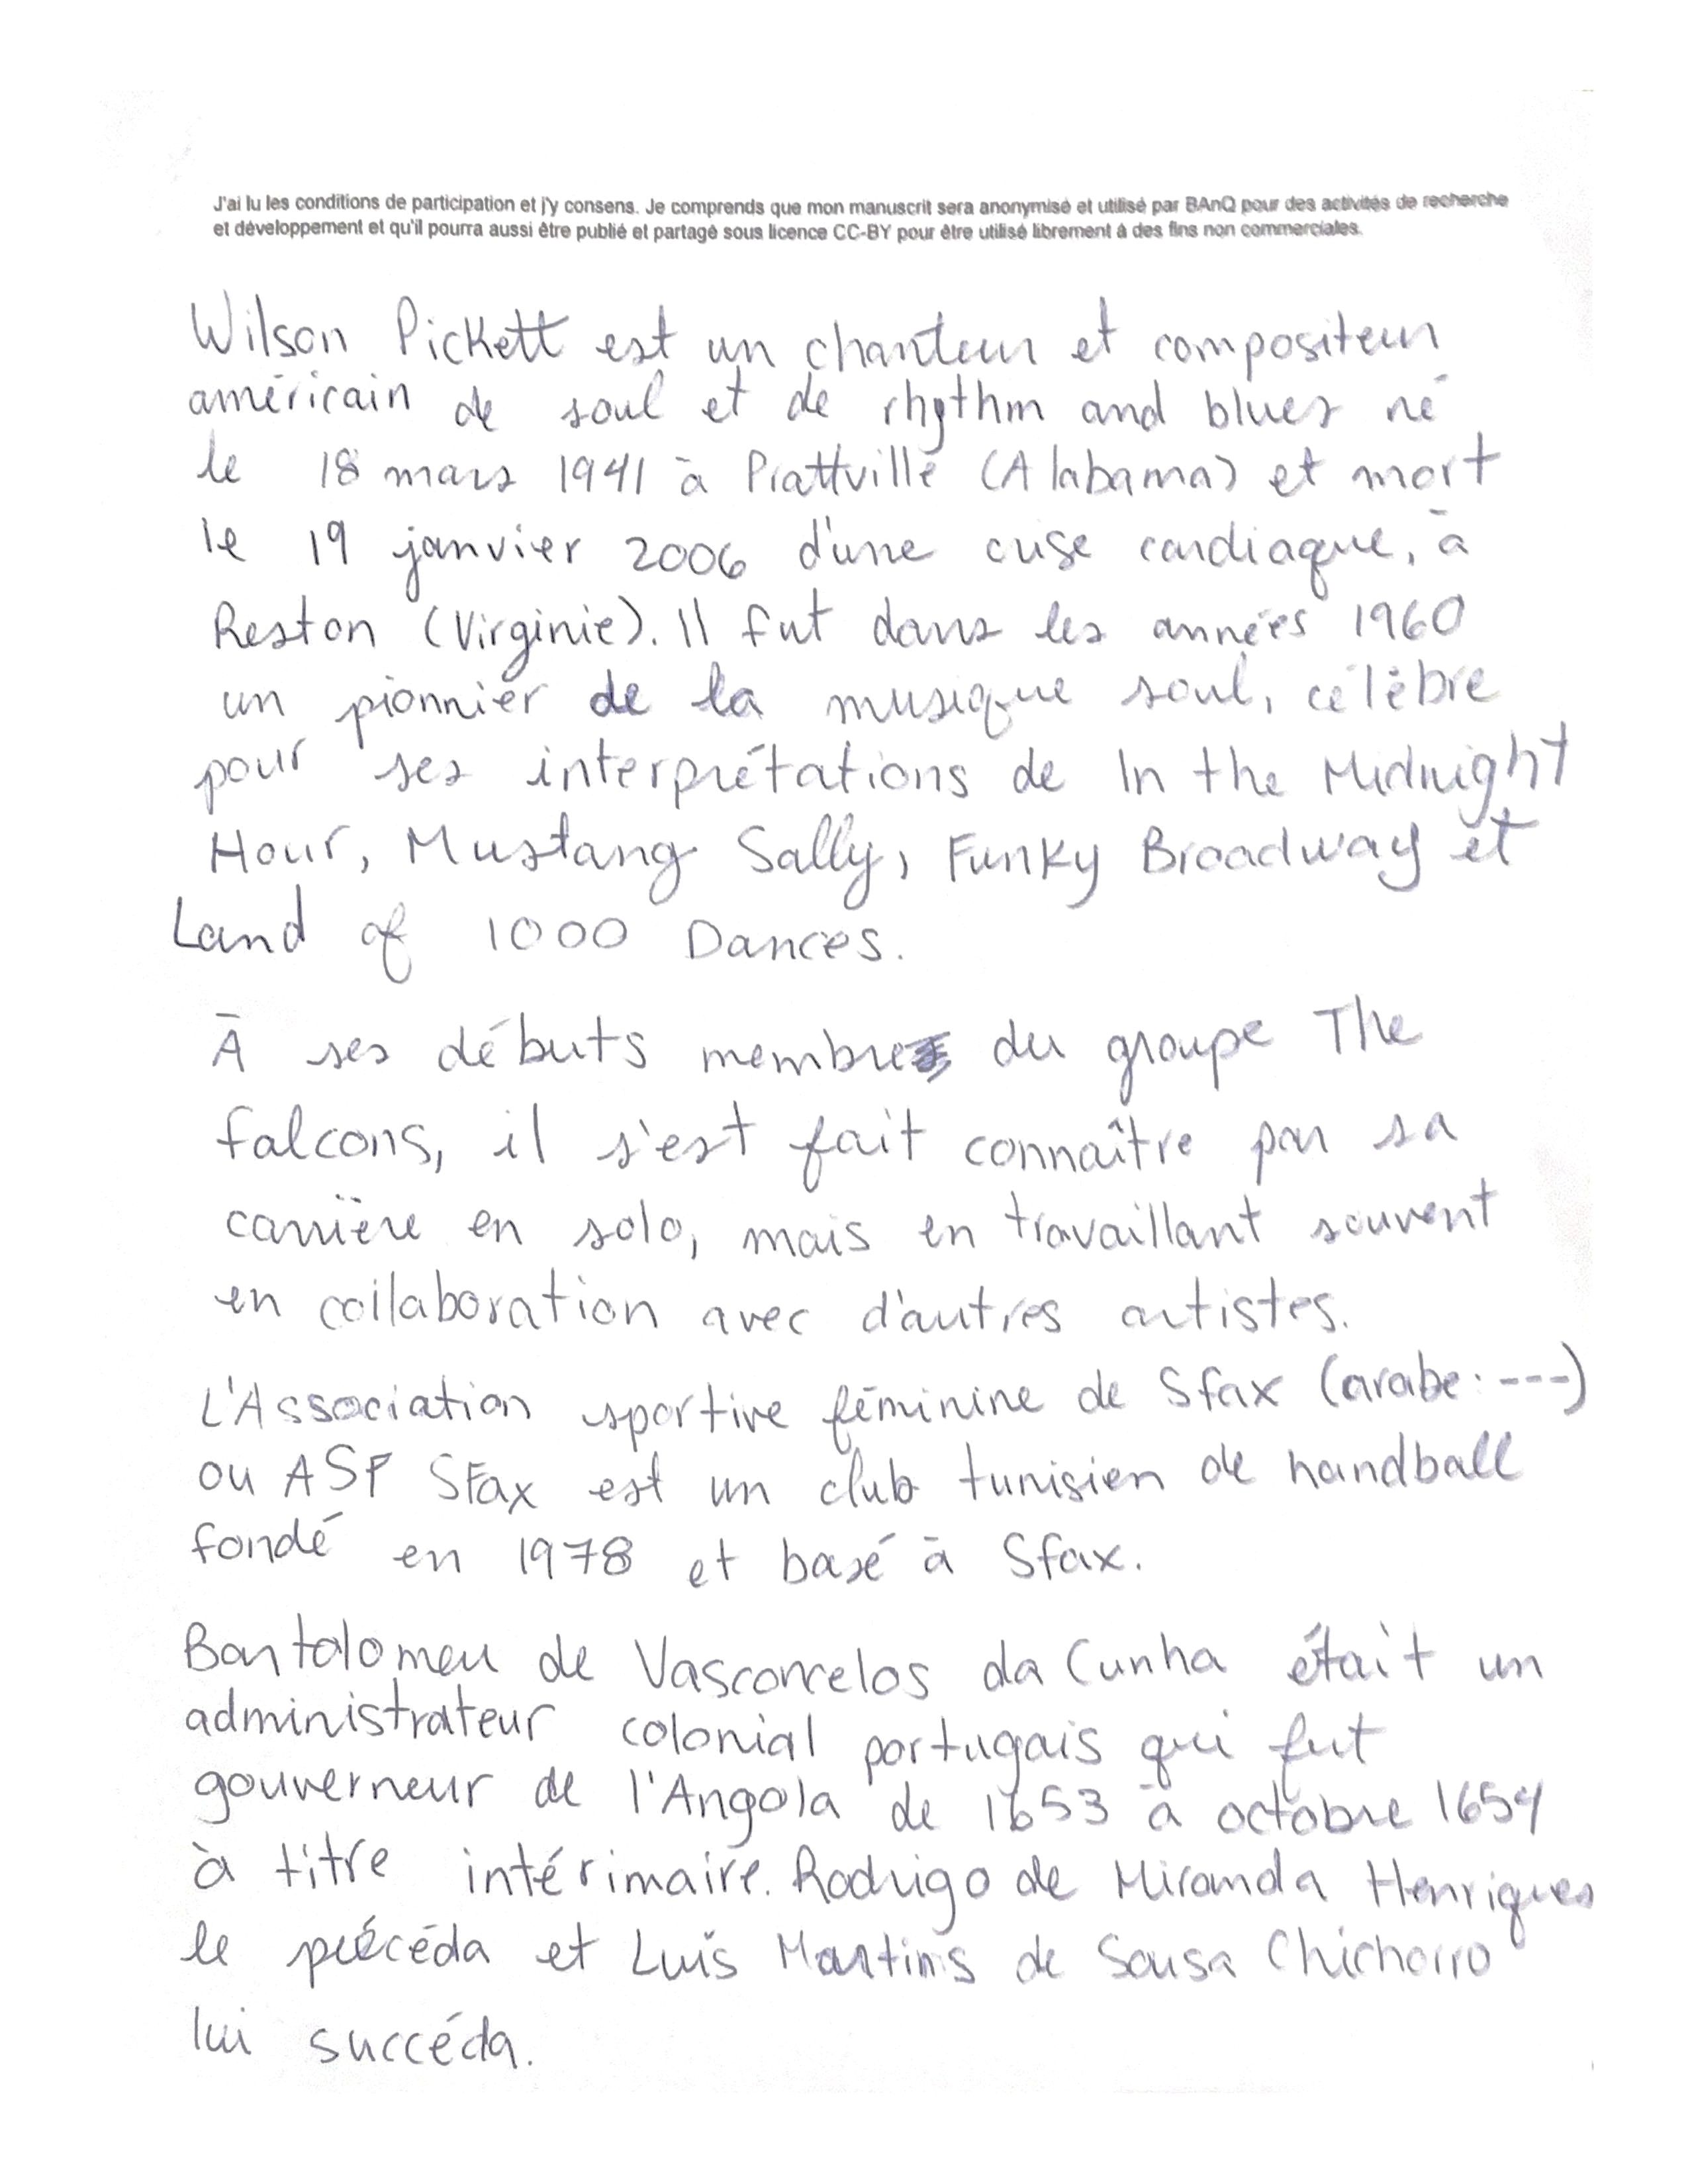 J'ai lu les conditions de participation et j'y consens. Je comprends que mon manuscrit sera anonymisé et utilisé par BAnQ pour des activités de recherche
et développement et qu'il pourra aussi être publié et partagé sous licence CC-BY pour être utilisé librement à des fins non commerciales.
Wilson Pickett est un chanteur et compositeur
américain de soul et de rhythm and blues né
le 18 mars 1941 à Prattville (Alabama) et mort
le 19 janvier 2006 d'une crise cardiaque, à
Reston (Virginie). Il fut dans les années 1960
un pionnier de la musique soul, célèbre
pour ses interprétations de In the Midnight
Hour, Mustang Sally, Funky Broadway et
Land of 1000 Dances.
À ses débuts membre du groupe The
falcons, il s'est fait connaître par sa
carrière en solo, mais en travaillant souvent
en collaboration avec d'autres artistes.
L'Association sportive féminine de Sfax (arabe: ---)
ou ASF Sfax est un club tunisien de handball
fondé en 1978 et basé à Sfax.
Bartolomeu de Vasconcelos da Cunha était un
administrateur colonial portugais qui fut
gouverneur de l'Angola de 1653 à octobre 1654
à titre intérimaire. Rodrigo de Miranda Henriques
le précéda et Luis Martins de Sousa Chichorro
lui succéda.